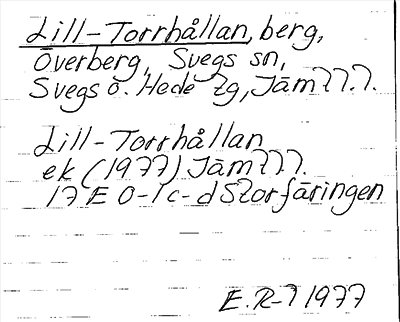 Lill-Torrhållan, berg,
Överberg, Svegs sn,
Svegs o. Hede tg, Jämtl.
Lill-Torrhållan
ek (1977) Jämtl.
17 E 0-1 c-d Storfäringen
1977